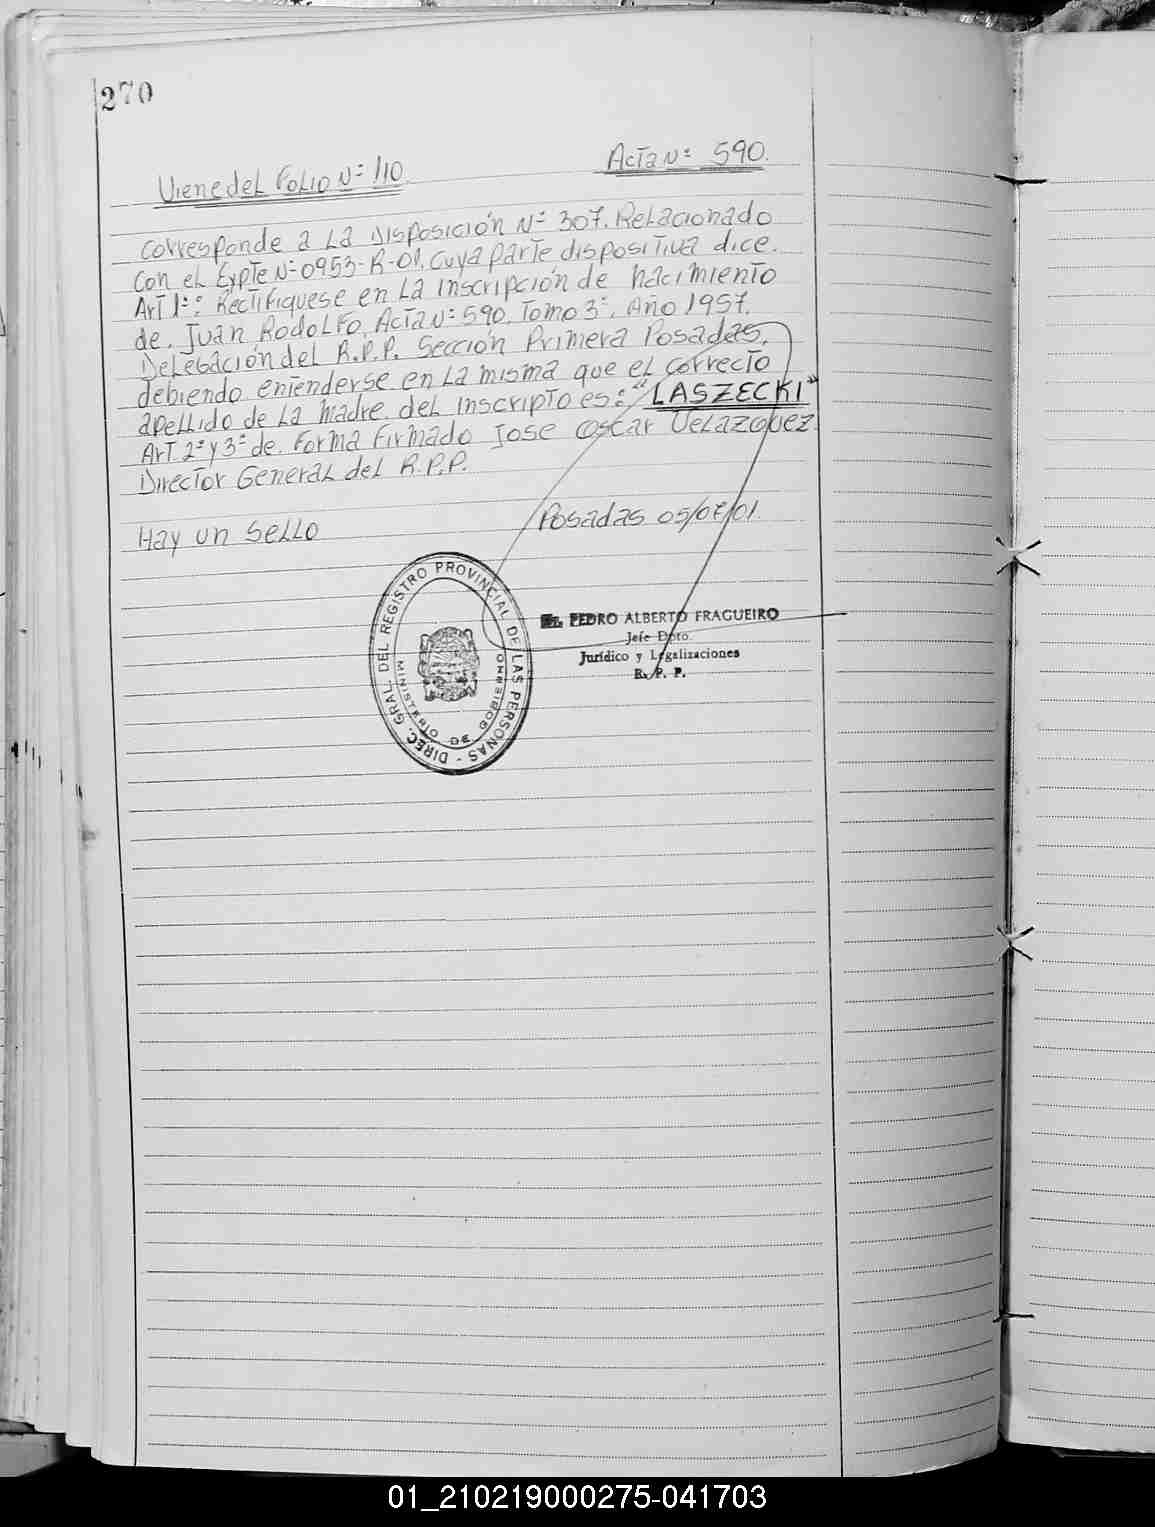 270
Viene del Folio Nº 110
Acta Nº 590.
Corresponde a la Disposición Nº 307. Relacionado
con el Expte Nº 0953-R-01, cuya parte dispositiva dice.
Art 1º: Rectifiquese en la inscripción de nacimiento
de. Juan Rodolfo, Acta Nº 590, Tomo 3º, Año 1957,
Delegación del R.P.P. Sección Primera Posadas,
debiendo entenderse en la misma que el correcto
apellido de la madre del inscripto es: "LASZECKI"
Art 2º y 3º de. Forma Firmado Jose Oscar Velazquez.
Director General del R.P.P.
Hay un sello
Posadas 05/07/01.
DIREC. GRAL. DEL REGISTRO PROVINCIAL DE LAS PERSONAS -
MINISTERIO DE GOBIERNO
PEDRO ALBERTO FRAGUEIRO
Jefe Dpto.
Jurídico y Legalizaciones
R. P. P.
01_210219000275-041703